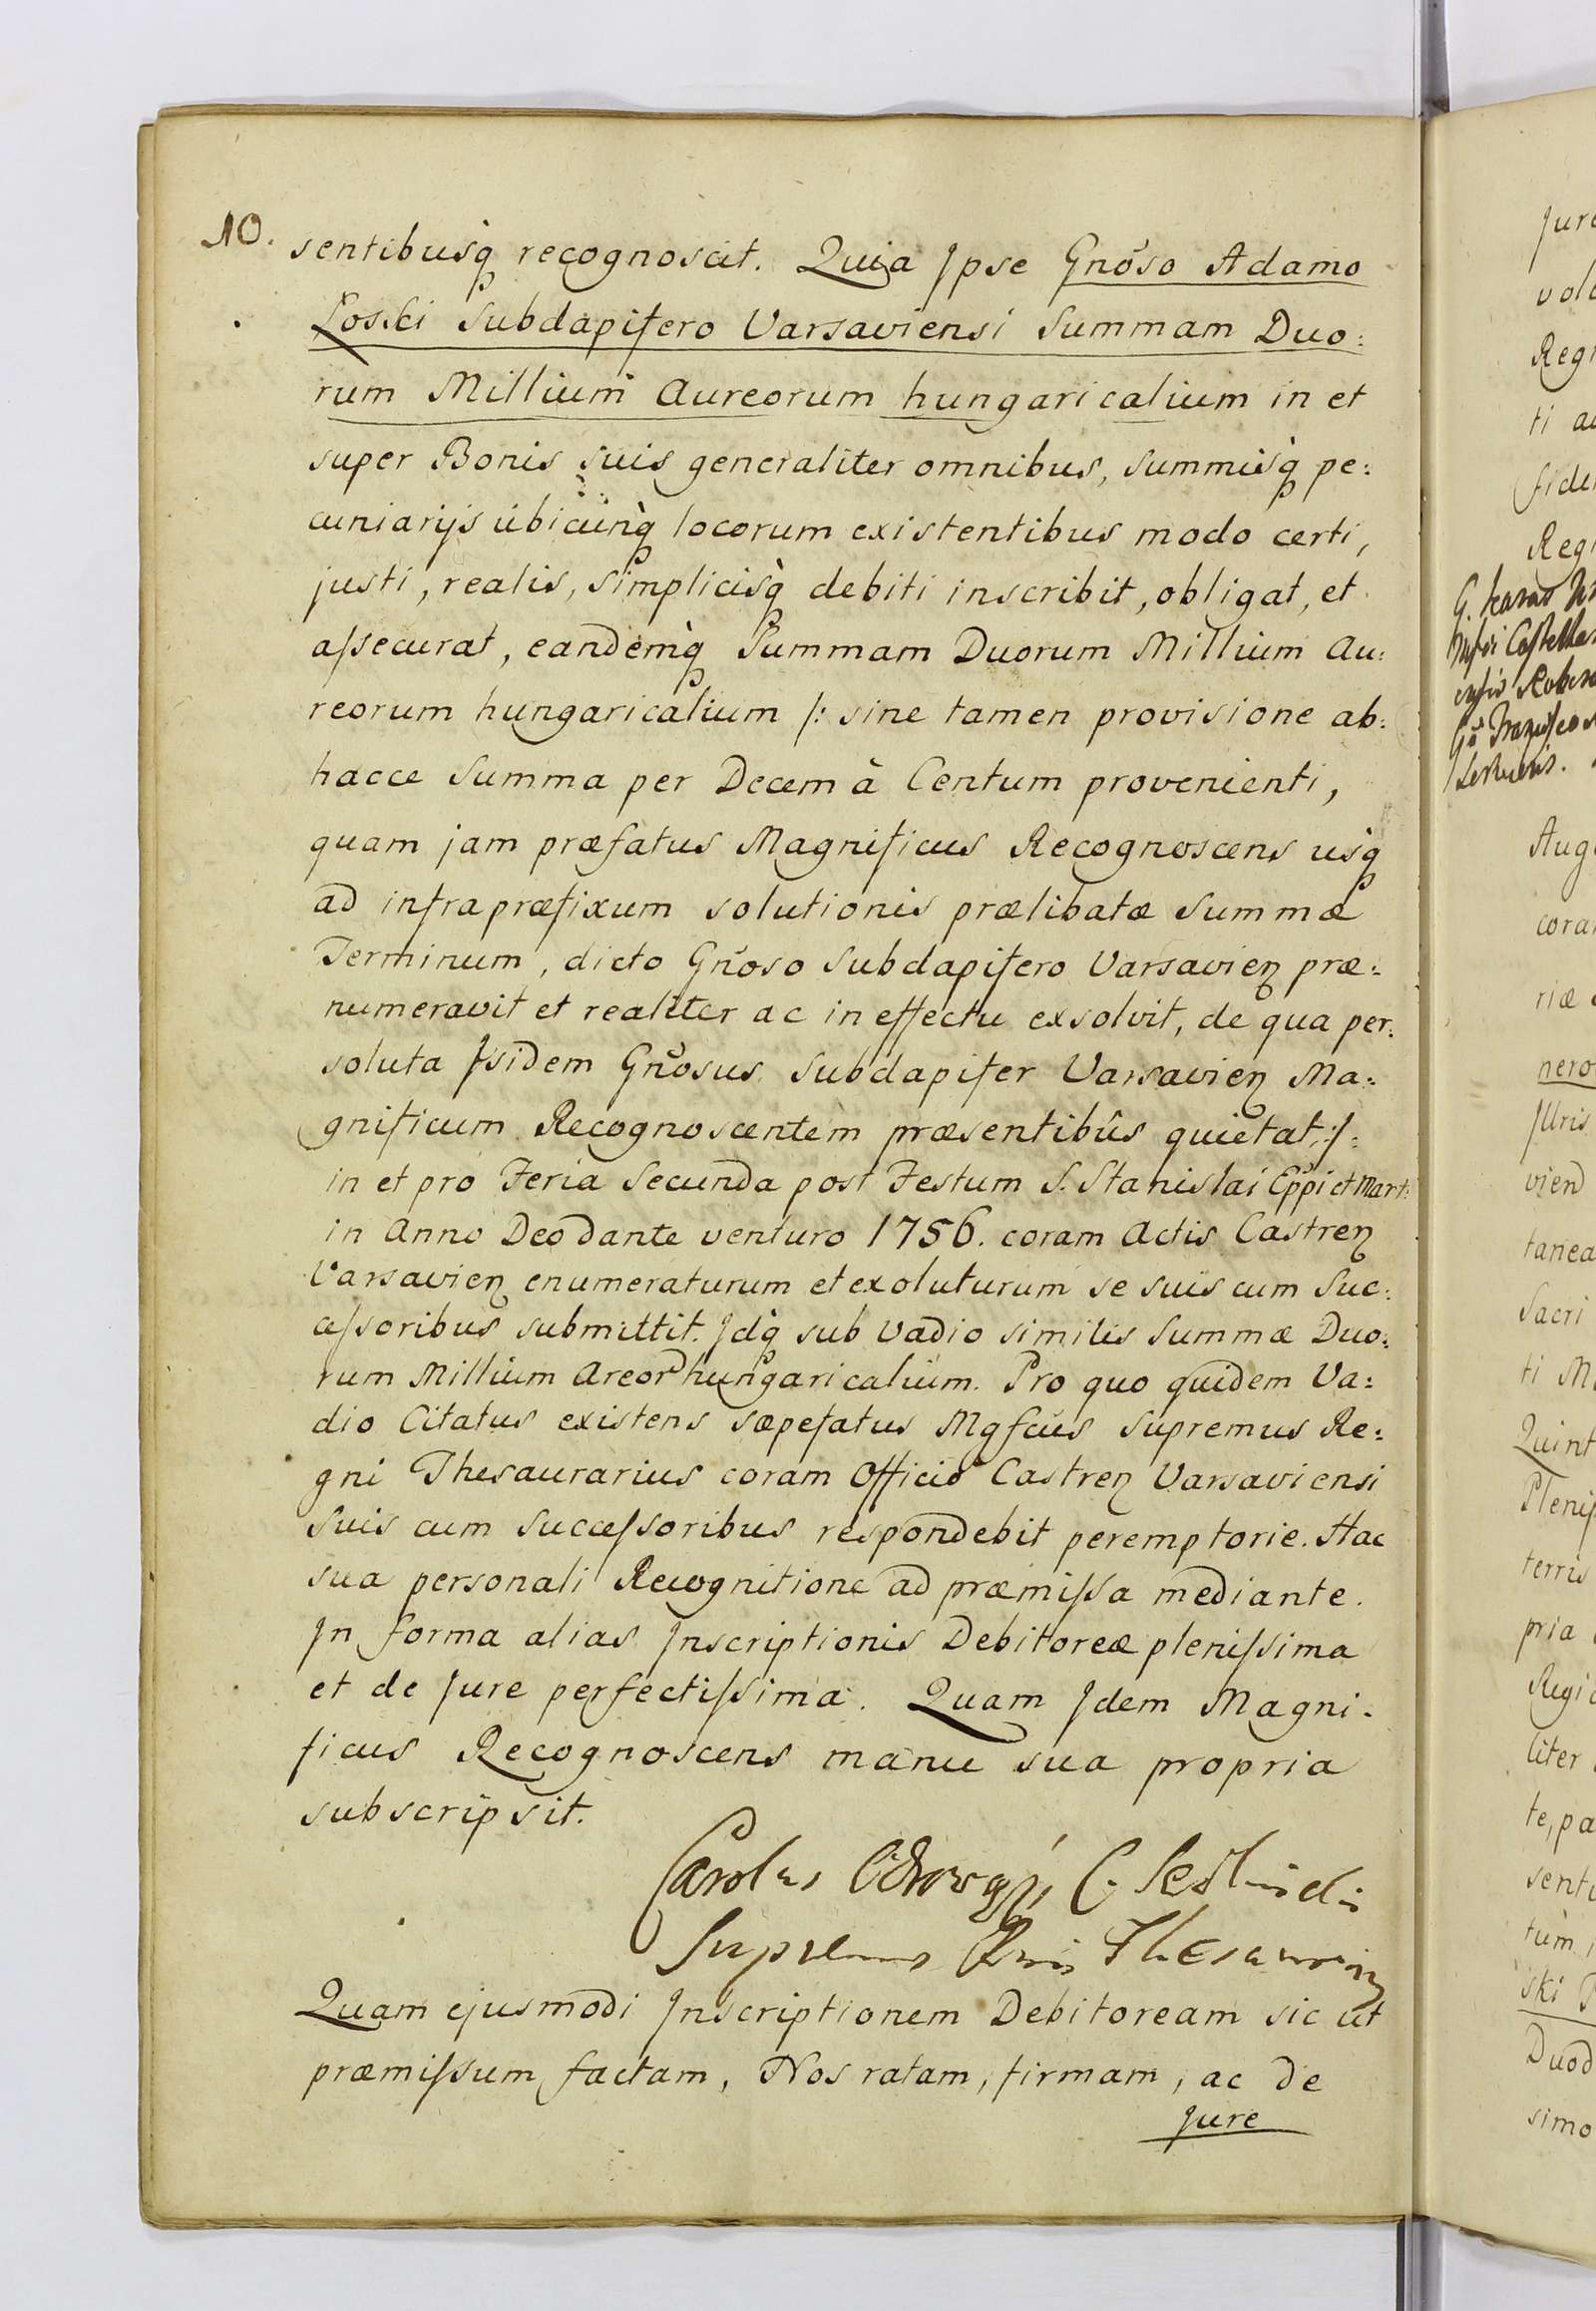 10.
sentibusq̀ recognoscit. Quia Jpse Gnõso Adamo
Łoski Subdapifero Varsaviensi Summam Duo:
rum Millium Aureorum hungaricalium in et
super Bonis suis generaliter omnibus, Summisq̀ pe:
cuniarijs ubicunq̀ locorum existentibus modo certi,
justi, realis, simplicisq̀ debiti inscribit, obligat, et
aſsecurat, eandemq̀ Summam Duorum Millium Au:
reorum hungaricalium /: sine tamen provisione ab:
hacce Summa per Decem à Centum provenienti,
quam jam præfatus Magnificus Recognoscens usq̀
ad infrapræfixum solutionis prælibatæ Summæ
Terminum, dicto Gnõso Subdapifero Varsavien præ:
numeravit et realiter ac in effectu exsolvit, de qua per:
soluta Jsidem Gnõsus Subdapifer Varsavien Ma:
gnificum Recognoscentem præsentibus quietat, :/:
in et pro Feria Secunda post Festum S. Stanislai Eppi et Mart:
in Anno Deo dante venturo 1756. coram Actis Castren
Varsavien enumeraturum et exoluturum se suis cum Suc:
ceſsoribus submittit. Jdq̀ sub vadio similis Summæ Duo:
rum Millium Areor hungaricalium. Pro quo quidem Va:
dio Citatus existens sæpefatus Mgfcus Supremus Re:
gni Thesaurarius coram Officio Castren Varsaviensi
Suis cum Succeſsoribus respondebit peremptorie. Hac
sua personali Recognitione ad præmiſsa mediante.
Jn forma alias Jnscriptionis Debitoreæ pleniſsima
et de Jure perfectiſsima. Quam Jdem Magni:
ficus Recognoscens manu sua propria
subscripsit.
Carolus Odrowąż C. Sedlnicki
Supremus Rni Thesaurariu
Quam ejusmodi Jnscriptionem Debitoream sic ut
præmiſsum factam, Nos ratam, firmam, ac de
Jure
Jure
Regi
ti
Regi
Aug
cora
riæ
nero
Juris
vien
tanea
Sacri
ti M
Quint
Pleniſ
terris
pria
Regi
liter
te, pa
sent
tum
ski
Duod
simo